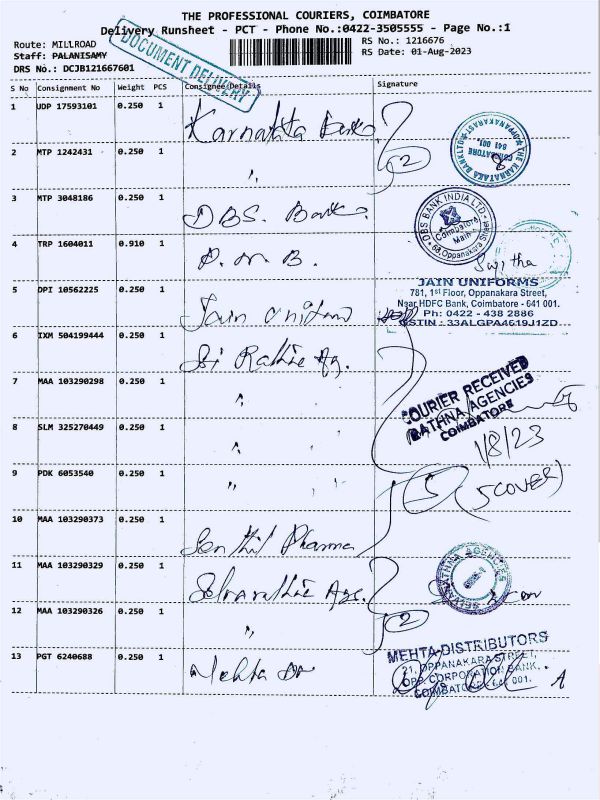 THE PROFESSIONAL COURIERS, COIMBATORE
Delivery Runsheet - PCT - Phone No.:0422-3505555 - Page No.:1
Route: MILLROAD
RS No.: 1216676
Staff: PALANISAMY
RS Date: 01-Aug-2023
DRS No.: DCJB121667601
DOCUMENT DELIVERY
S No Consignment No Weight PCS Consignee/Details Signature
1 UDP 17593101 0.250 1 Karnataka Bank
THE KARNATAKA BANK LTD COIMBATORE 641 001
2 MTP 1242431 0.250 1 " 2
3 MTP 3048186 0.250 1 DBS. Bank.
DBS BANK INDIA LTD. Coimbatore Main 68, Oppanakara Street
4 TRP 1604011 0.910 1 P. N. B.
5 DPI 10562225 0.250 1 Jain Uniform
JAIN UNIFORMS
781, 1st Floor, Oppanakara Street,
Near HDFC Bank, Coimbatore - 641 001.
Ph: 0422 - 438 2886
GSTIN : 33ALGPA4619J1ZD
6 IXM 504199444 0.250 1 Sri Rathie Ag.
7 MAA 103290298 0.250 1 " "
COURIER RECEIVED
RATHNA AGENCIES
COIMBATORE
8 SLM 325270449 0.250 1 " "
1/8/23
9 PDK 6053540 0.250 1 " " 5 (5 COVER)
10 MAA 103290373 0.250 1 Senthil Pharma
11 MAA 103290329 0.250 1 Selvarathie Ags.
12 MAA 103290326 0.250 1 " 2
13 PGT 6240688 0.250 1 Mehta Dis
MEHTA DISTRIBUTORS
21, OPPANAKARA STREET,
OPP. CORPORATION BANK,
COIMBATORE - 641 001.